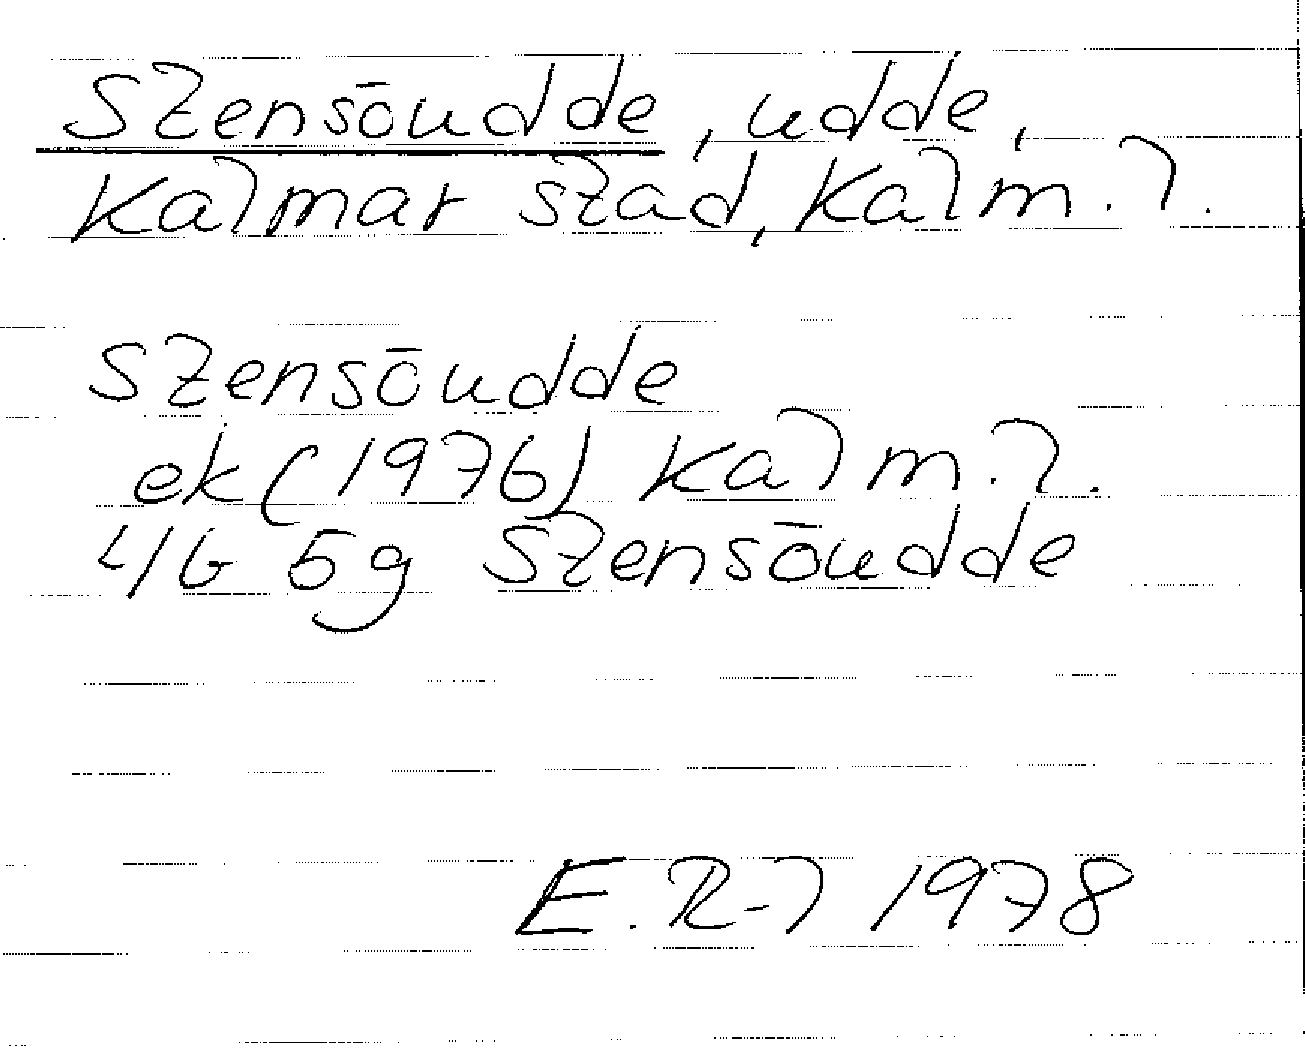 Stensöudde, udde,
Kalmar stad, Kalm. l.
Stensöudde
ek (1976) Kalm. l.
4G 5g Stensöudde
E. R-l 1978